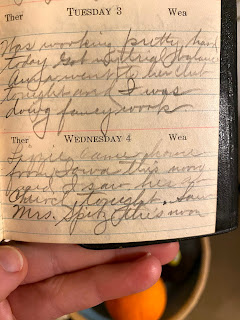 Ther TUESDAY 3 Wea
Was working pretty hard
today Got material
went to her club
tonight and I was
doing fancy work
Ther WEDNESDAY 4 Wea
came home
from Iowa this morn
I saw her at
Church tonight. Saw
Mrs. Spitz this morn